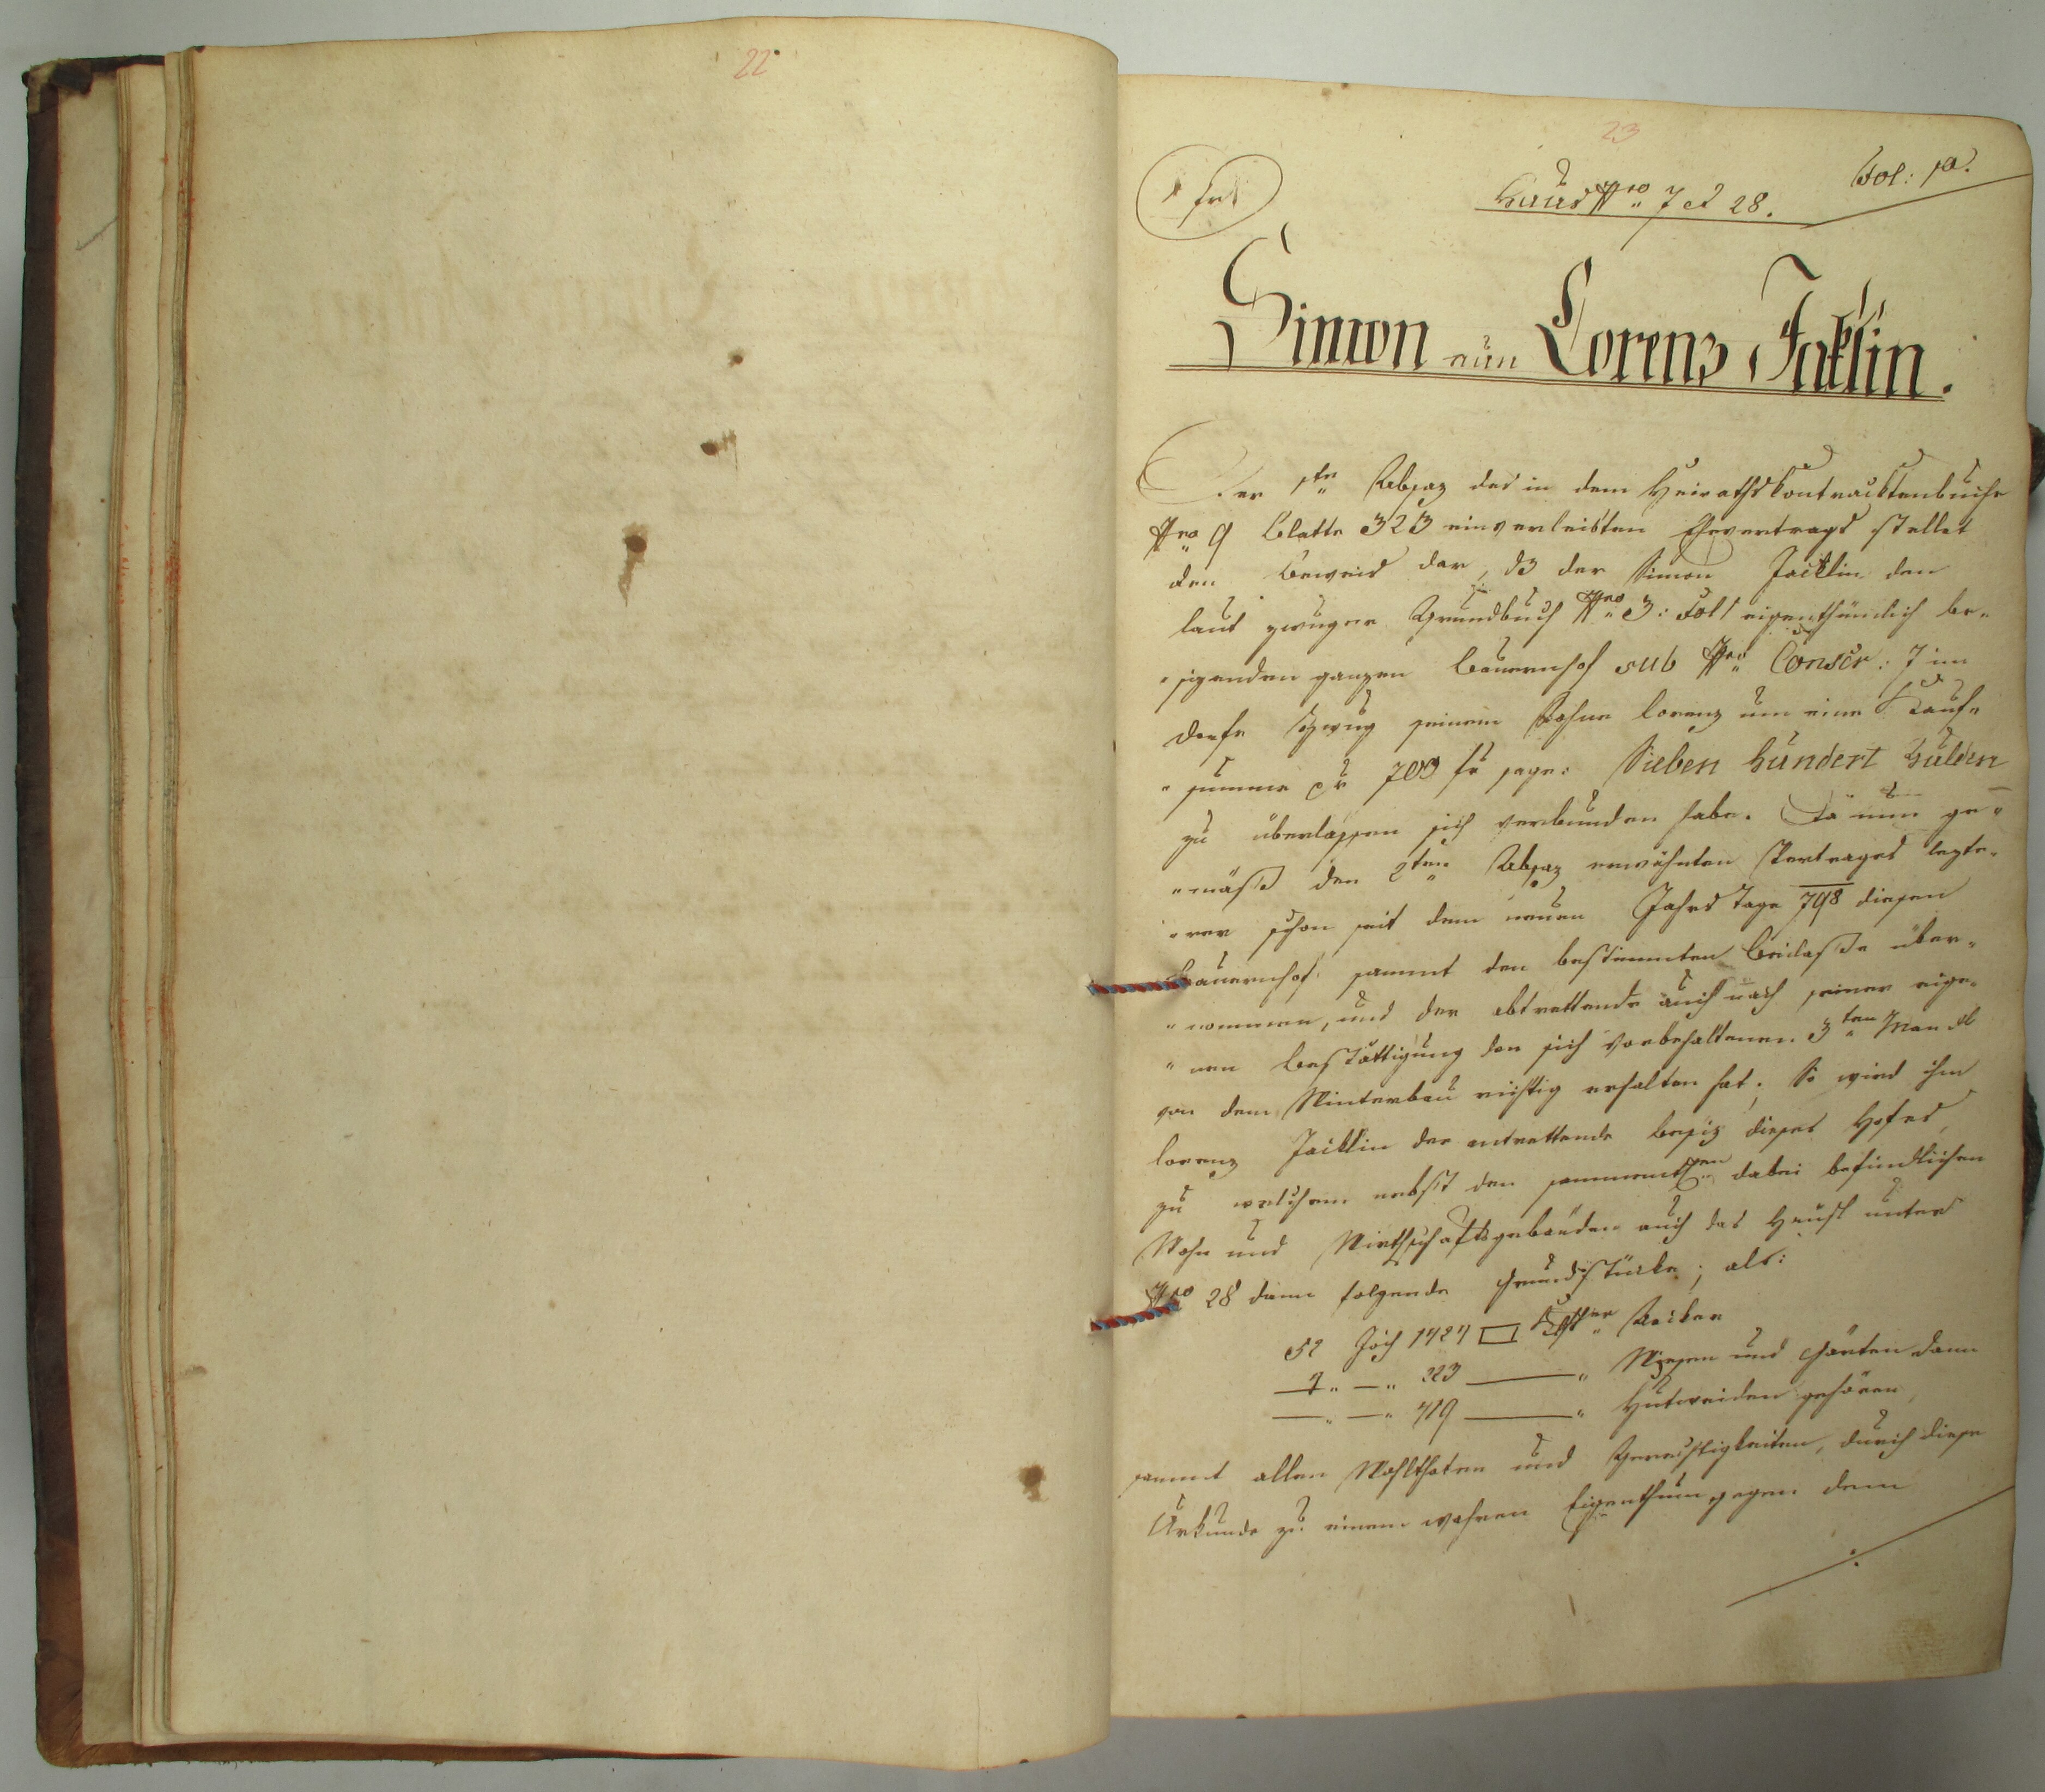 22
23
Haus Nro 7 et 28.
Fol: 10.
Simon nun Lorenz Jaklin.
Der 1te Absaz des in dem Heirathskontracktenbuche
Nro 9 Blatte 323 einverleibten Ehevertrags stellet
den Beweis dar, dz der Simon Jacklin den
laut Grundbuch Nro 3: Fol 1 eigenthümlich be„
„sizenden ganzen Bauernhof sub Nro Conscr: 7 im
Dorfe seinem Sohne Lorenz um eine Kauf„
„summe pr 700 fr sage: Sieben Hundert Gulden
zu überlassen sich verbunden habe. Da nun ge„
„mäß den 2ten Absaz erwähnten Vertrages lezte„
„rer schon seit dem neuen Jahrs Tage 798 diesen
Bauernhof sammt den bestimmten Beilaße über„
„nommen, und der abtrettende auch nach seiner eige„
„nen Bestättigung den sich vorbehaltenen 3ten Mandl
von dem Winterbau richtig erhalten hat; So wird ihm
Lorenz Jacklin der antrettende Besiz dieses Hofes,
zu welchem nebst den sammentlichen dabei befindlichen
Wohn und Wirthschaftsgebäuden auch das Häusl unter
Nro 28 dann folgende Grundstücke; als:
52 Joch 1424 □ Klftr Aecker
2 „ — „ 323 — „ Wiesen und Gärten dann
— „ — „ 419 — „ Hutweiden gehören,
sammt allen Wohlthaten und Gerechtigkeiten, durch diese
Urkunde zu einem wahren Eigenthum gegen dem